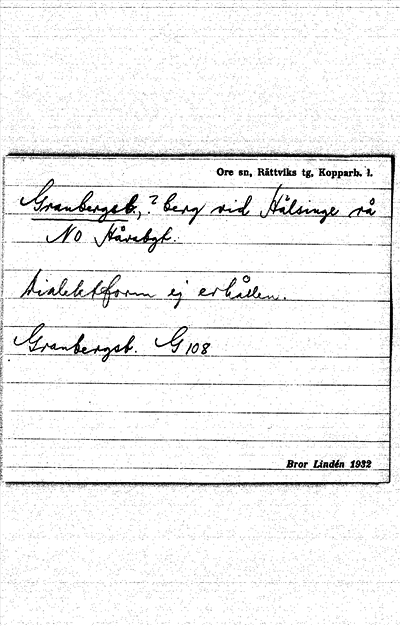 Ore sn, Rättviks tg, Kopparb. l.
Granbergsb., ? berg vid Hälsinge rå
NO
Dialektform ej erhållen.
Granbergsb. G 108
Bror Lindén 1932